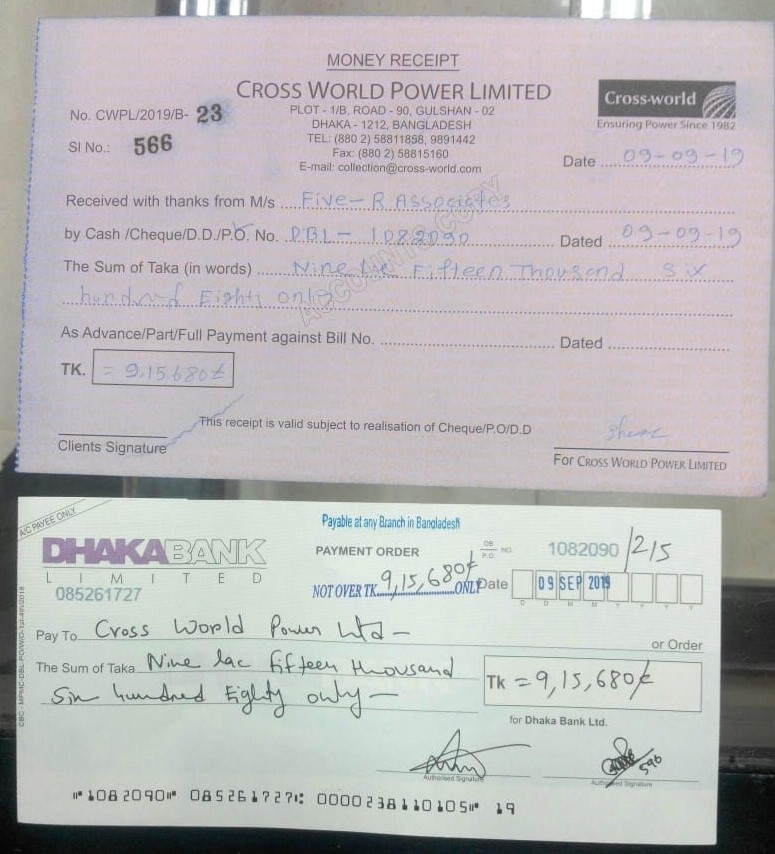 MONEY RECEIPT
CROSS WORLD POWER LIMITED
PLOT - 1/B, ROAD - 90, GULSHAN - 02
DHAKA - 1212, BANGLADESH
TEL: (880 2) 58811858, 9891442
Fax: (880 2) 58815160
E-mail: collection@cross-world.com
Cross-world
Ensuring Power Since 1982
No. CWPL/2019/B- 23
Sl No.: 566
Date 09-09-19
Received with thanks from M/s Five-R Associates
by Cash /Cheque/D.D./P.O. No. DBL- 1082090 Dated 09-09-19
The Sum of Taka (in words) Nine lac Fifteen Thousand six
hundred Eighty only
ACCOUNTS COPY
As Advance/Part/Full Payment against Bill No. Dated
TK. = 9,15,680/=
This receipt is valid subject to realisation of Cheque/P.O/D.D
Clients Signature
For CROSS WORLD POWER LIMITED
A/C PAYEE ONLY
Payable at any Branch in Bangladesh
DHAKABANK
LIMITED
085261727
PAYMENT ORDER
DB
P.O. NO. 1082090/215
NOT OVER TK. 9,15,680/= ONLY
Date 09 SEP 2019
D D M M Y Y Y Y
Pay To Cross World Power Ltd-
or Order
The Sum of Taka Nine lac fifteen thousand
Six hundred Eighty only-
Tk =9,15,680/=
for Dhaka Bank Ltd.
Authorised Signature
596
Authorised Signature
⑈1082090⑈ 085261727⑆ 0000238110105⑈ 19